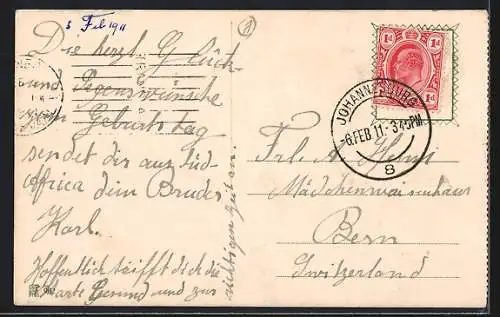 5 Feb 1911
1
Die herzl. Glück
und Segenswünsche
zum Geburtstag
sendet dir aus Süd
Africa dein Bruder
Karl.
Hoffentlich trifft dich die
Karte Gesund und zur
richtigen Zeit an.
1d 1d
1d
JOHANNESBURG
6 FEB 11 · 3 45 PM
8
Frl. A.
Mädchenwaisenhaus
Bern
Switzerland